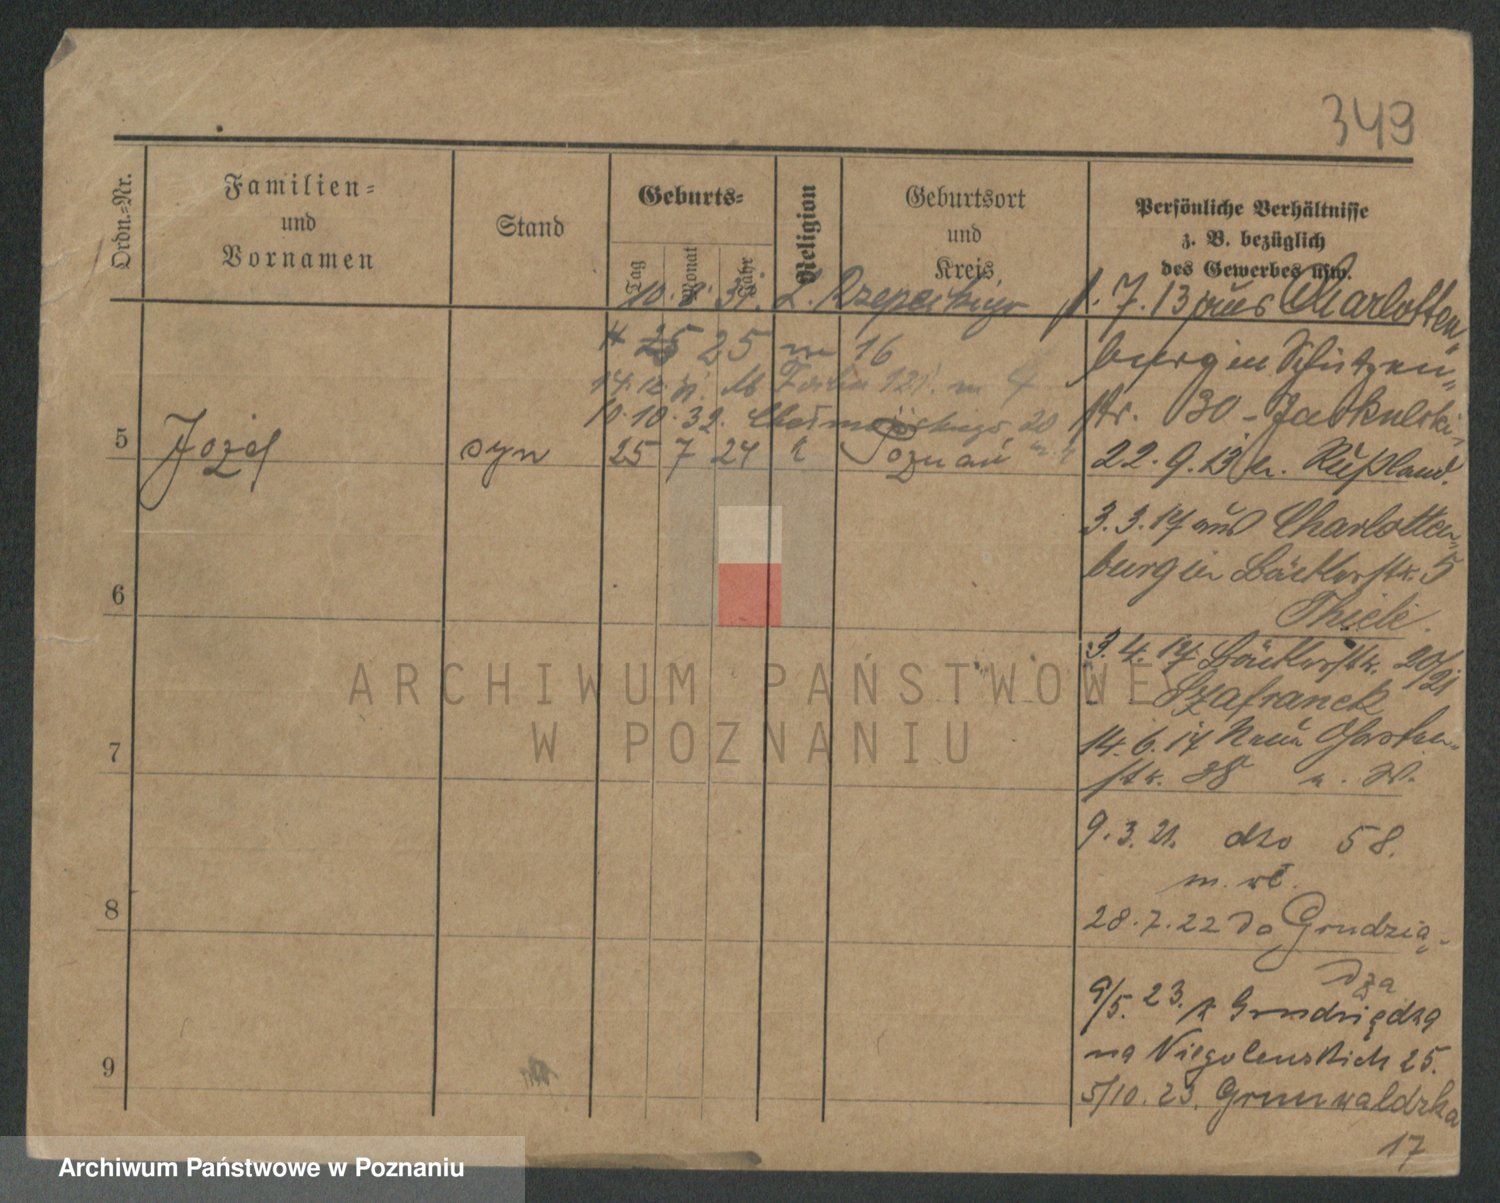 349
Ordn.=Nr.
Familien=
und
Vornamen
Stand
Geburts=
Tag
Monat
Jahr
Religion
Geburtsort
und
Kreis
Persönliche Verhältnisse
z. B. bezüglich
des Gewerbes usw.
1.7.13 aus Charlotten=
burg in Schützen=
str. 30 - Jaskulski
22.9.13 n. Rußland.
3.3.14 aus Charlotten=
burg in Bäckerstr. 5
Thiele.
3.4.14 Bäckerstr. 20/21
Szafranek
14.6.14 Neue Garten=
str. 38 n. W.
9.3.21. dto 58.
m. wł.
28.7.22 do Grudzią-
dza
9/5.23. z Grudziądza
na Niegolewskich 25.
5/10.23. Grunwaldzka
17
10. 31. L. Rzepeckiego
25 25 m 16
14.12. m 4
10.10.32. Chełmońskiego 20
5 Józef syn 25 7 24 k Poznań
6
7
8
9
ARCHIWUM PAŃSTWOWE
W POZNANIU
Archiwum Państwowe w Poznaniu